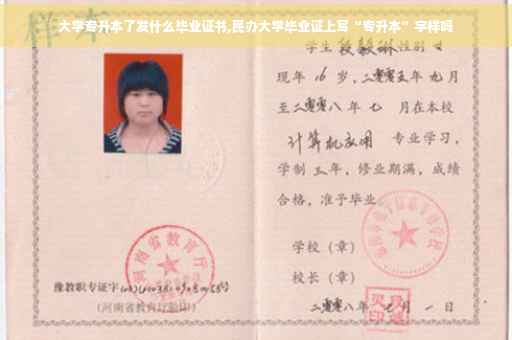 大学专升本了发什么毕业证书,民办大学毕业证上写“专升本”字样吗
样本
学生段毅琳性别女
现年16岁，二零零五年九月
至二零零八年七月在本校
计算机应用 专业学习，
学制三年，修业期满，成绩
合格，准予毕业
学校（章）
校长（章）
二零零八年 月一日
河南省教育厅
豫教职专证字
(河南省教育厅验印)